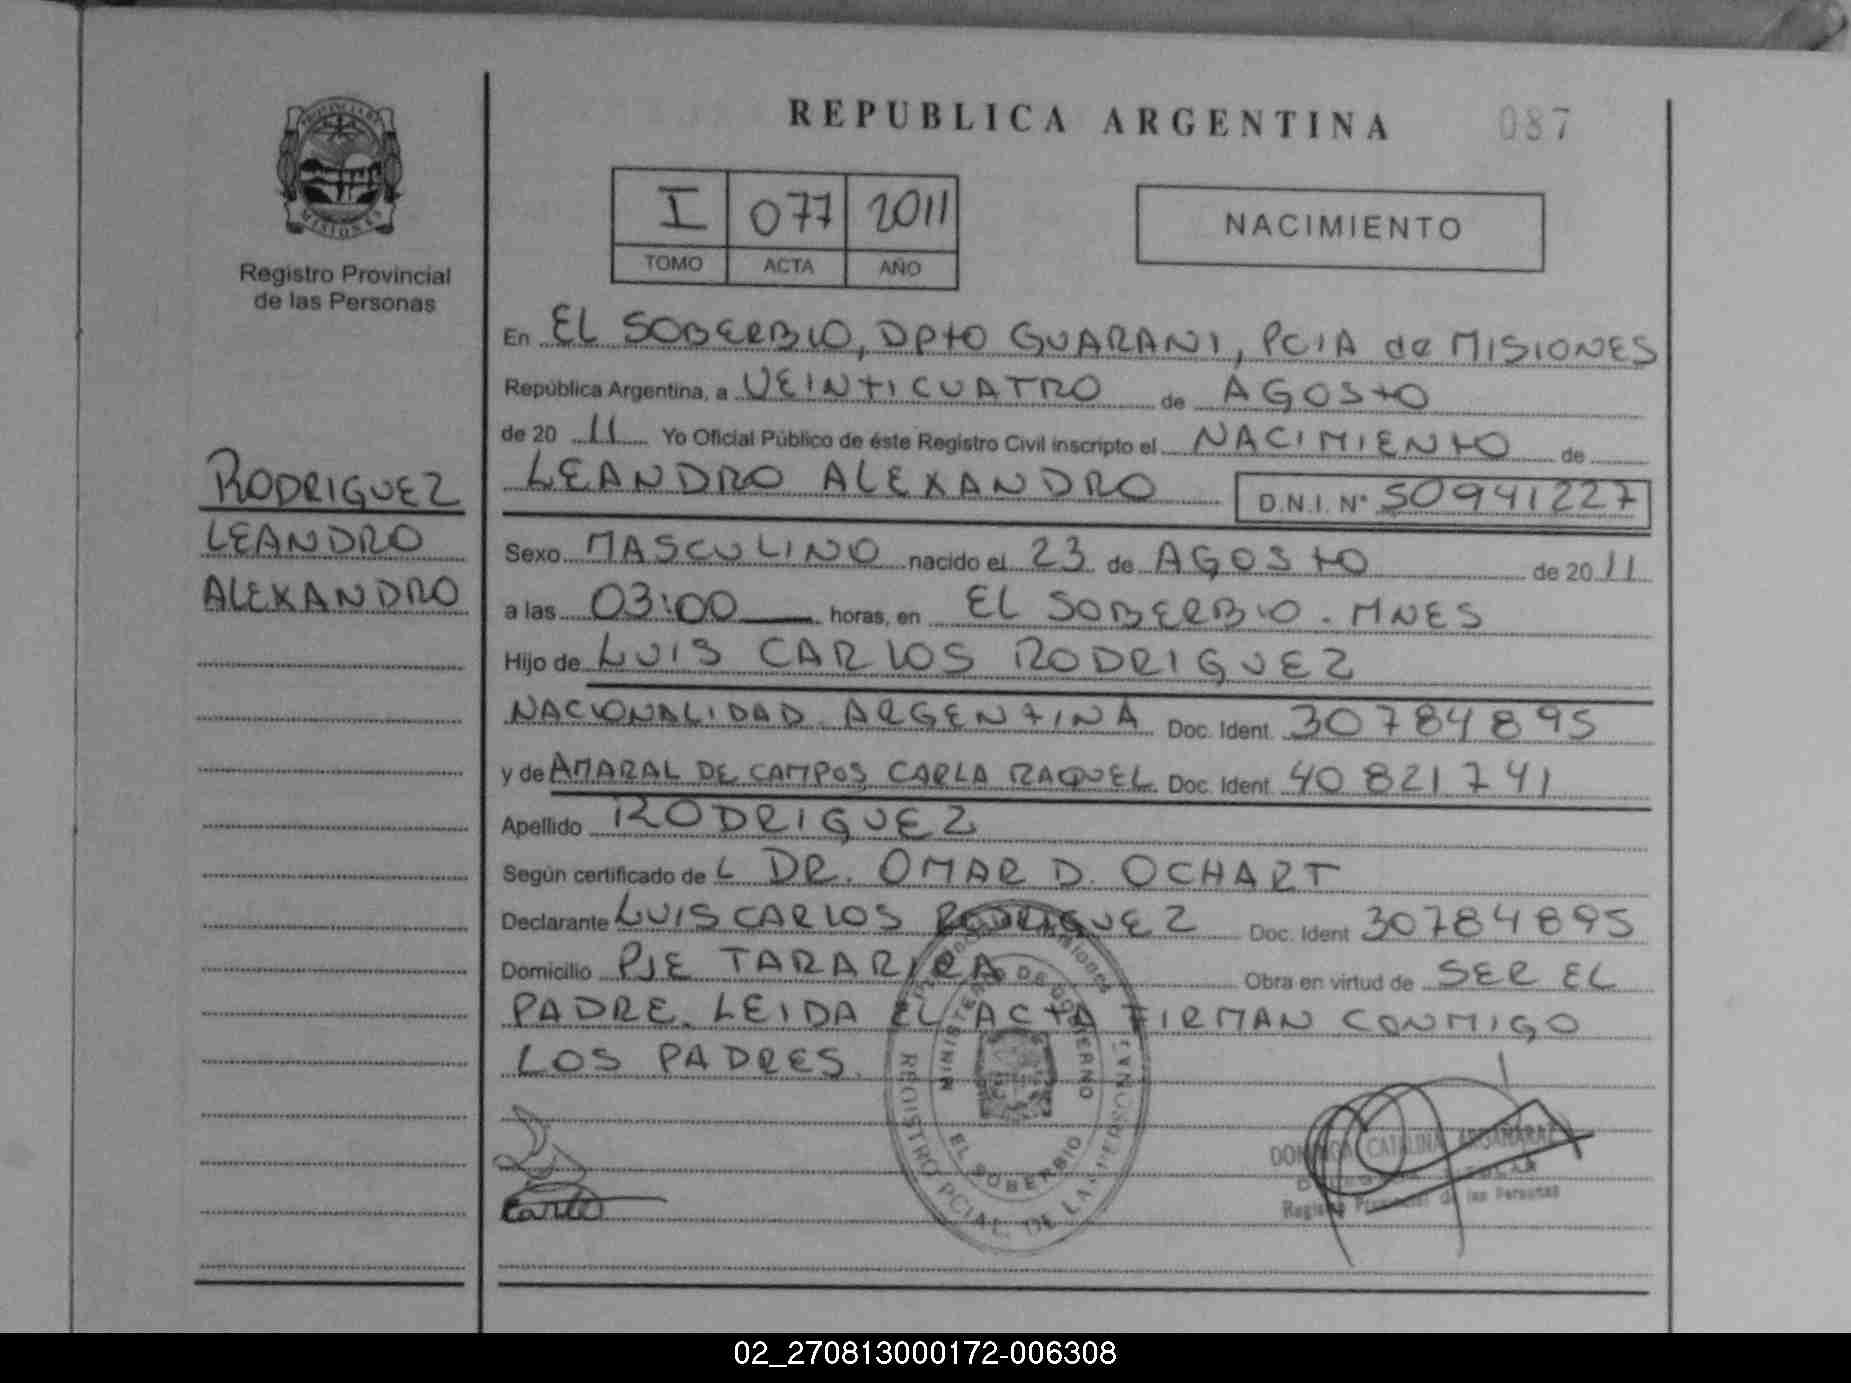 REPUBLICA ARGENTINA
087
PROVINCIA DE
MISIONES
Registro Provincial
de las Personas
I 077 2011
TOMO ACTA AÑO
NACIMIENTO
En EL SOBERBIO, DPTO GUARANI, PCIA de MISIONES
República Argentina, a VEINTICUATRO de AGOSTO
de 20 11 Yo Oficial Público de éste Registro Civil inscripto el NACIMIENTO de
LEANDRO ALEXANDRO D.N.I. N° 50941227
RODRIGUEZ
LEANDRO
ALEXANDRO
Sexo MASCULINO nacido el 23 de AGOSTO de 20 11
a las 03:00 horas, en EL SOBERBIO. MNES
Hijo de LUIS CARLOS RODRIGUEZ
NACIONALIDAD ARGENTINA Doc. Ident. 30784895
y de AMARAL DE CAMPOS CARLA RAQUEL Doc. Ident. 40821741
Apellido RODRIGUEZ
Según certificado de L DR. OMAR D. OCHART
Declarante LUIS CARLOS RODRIGUEZ Doc. Ident 30784895
Domicilio PJE TARARIRA Obra en virtud de SER EL
PADRE. LEIDA EL ACTA FIRMAN CONMIGO
LOS PADRES.
MINISTERIO DE GOBIERNO
EL SOBERBIO
REGISTRO PCIAL. DE LAS PERSONAS
CATALINA
Registro Provincial de las Personas
02_270813000172-006308